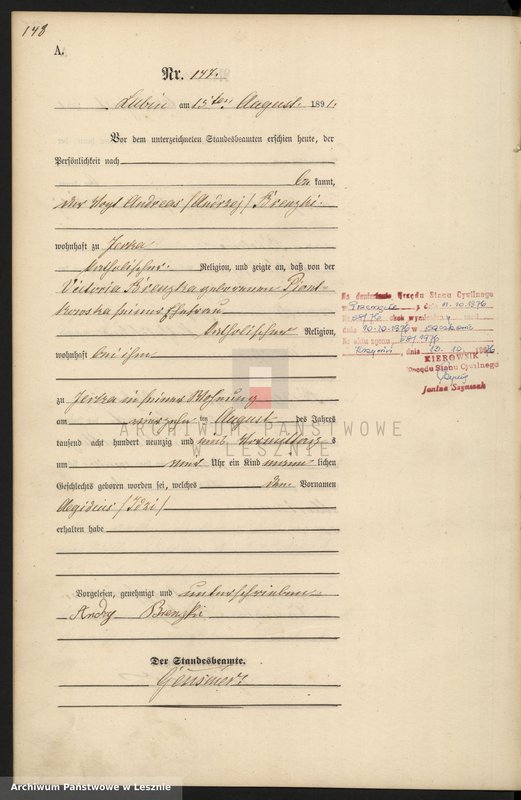 148
A.
Nr. 147.
Lubin am 15ten August 1891.
Vor dem unterzeichneten Standesbeamten erschien heute, der
Persönlichkeit nach
be kannt,
der Vogt Andreas /Andrzej/ Brenzki
wohnhaft zu Jerka
katholischer Religion, und zeigte an, daß von der
Victoria Brenzka geborenen Piont-
kowska seiner Ehefrau
katholischer Religion,
wohnhaft bei ihm
zu Jerka in seiner Wohnung
am ten August des Jahres
tausend acht hundert neunzig und eins Vormittags
um Uhr ein Kind männ lichen
Geschlechts geboren worden sei, welches den Vornamen
Aegidius /Idzi/
erhalten habe
Vorgelesen, genehmigt und unterschrieben
Andrzy Brenzki
Der Standesbeamte.
Na doniesienie Urzędu Stanu Cywilnego
w z dnia 11.10.1976
Nr
dnia 10.10.1976 w
Nr aktu zgonu
dnia 1976
KIEROWNIK
Urzędu Stanu Cywilnego
Janina Szymczak
ARCHIWUM PAŃSTWOWE
W LESZNIE
Archiwum Państwowe w Lesznie